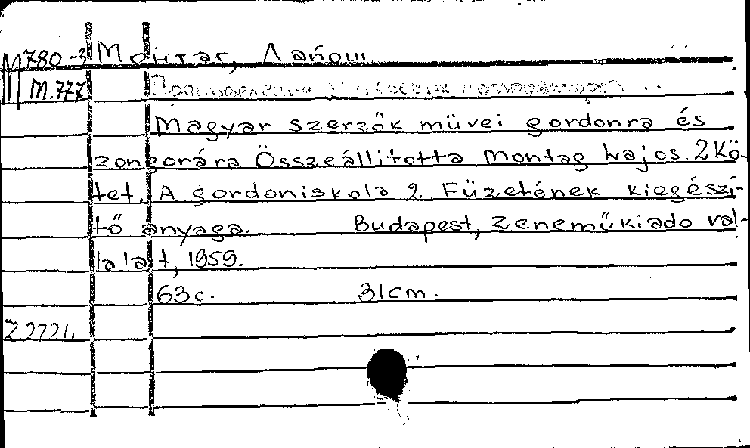 M780-3 Монтаг, Лайош
M.777
Magyar szerzők művei gordonra és
zongorára Összeállította Montag Lajos. 2 Kö-
tet. A gordoniskola 2. Füzetének kiegészí-
tő anyaga. Budapest, Zeneműkiado val-
lalat, 1959.
63c. 31cm.